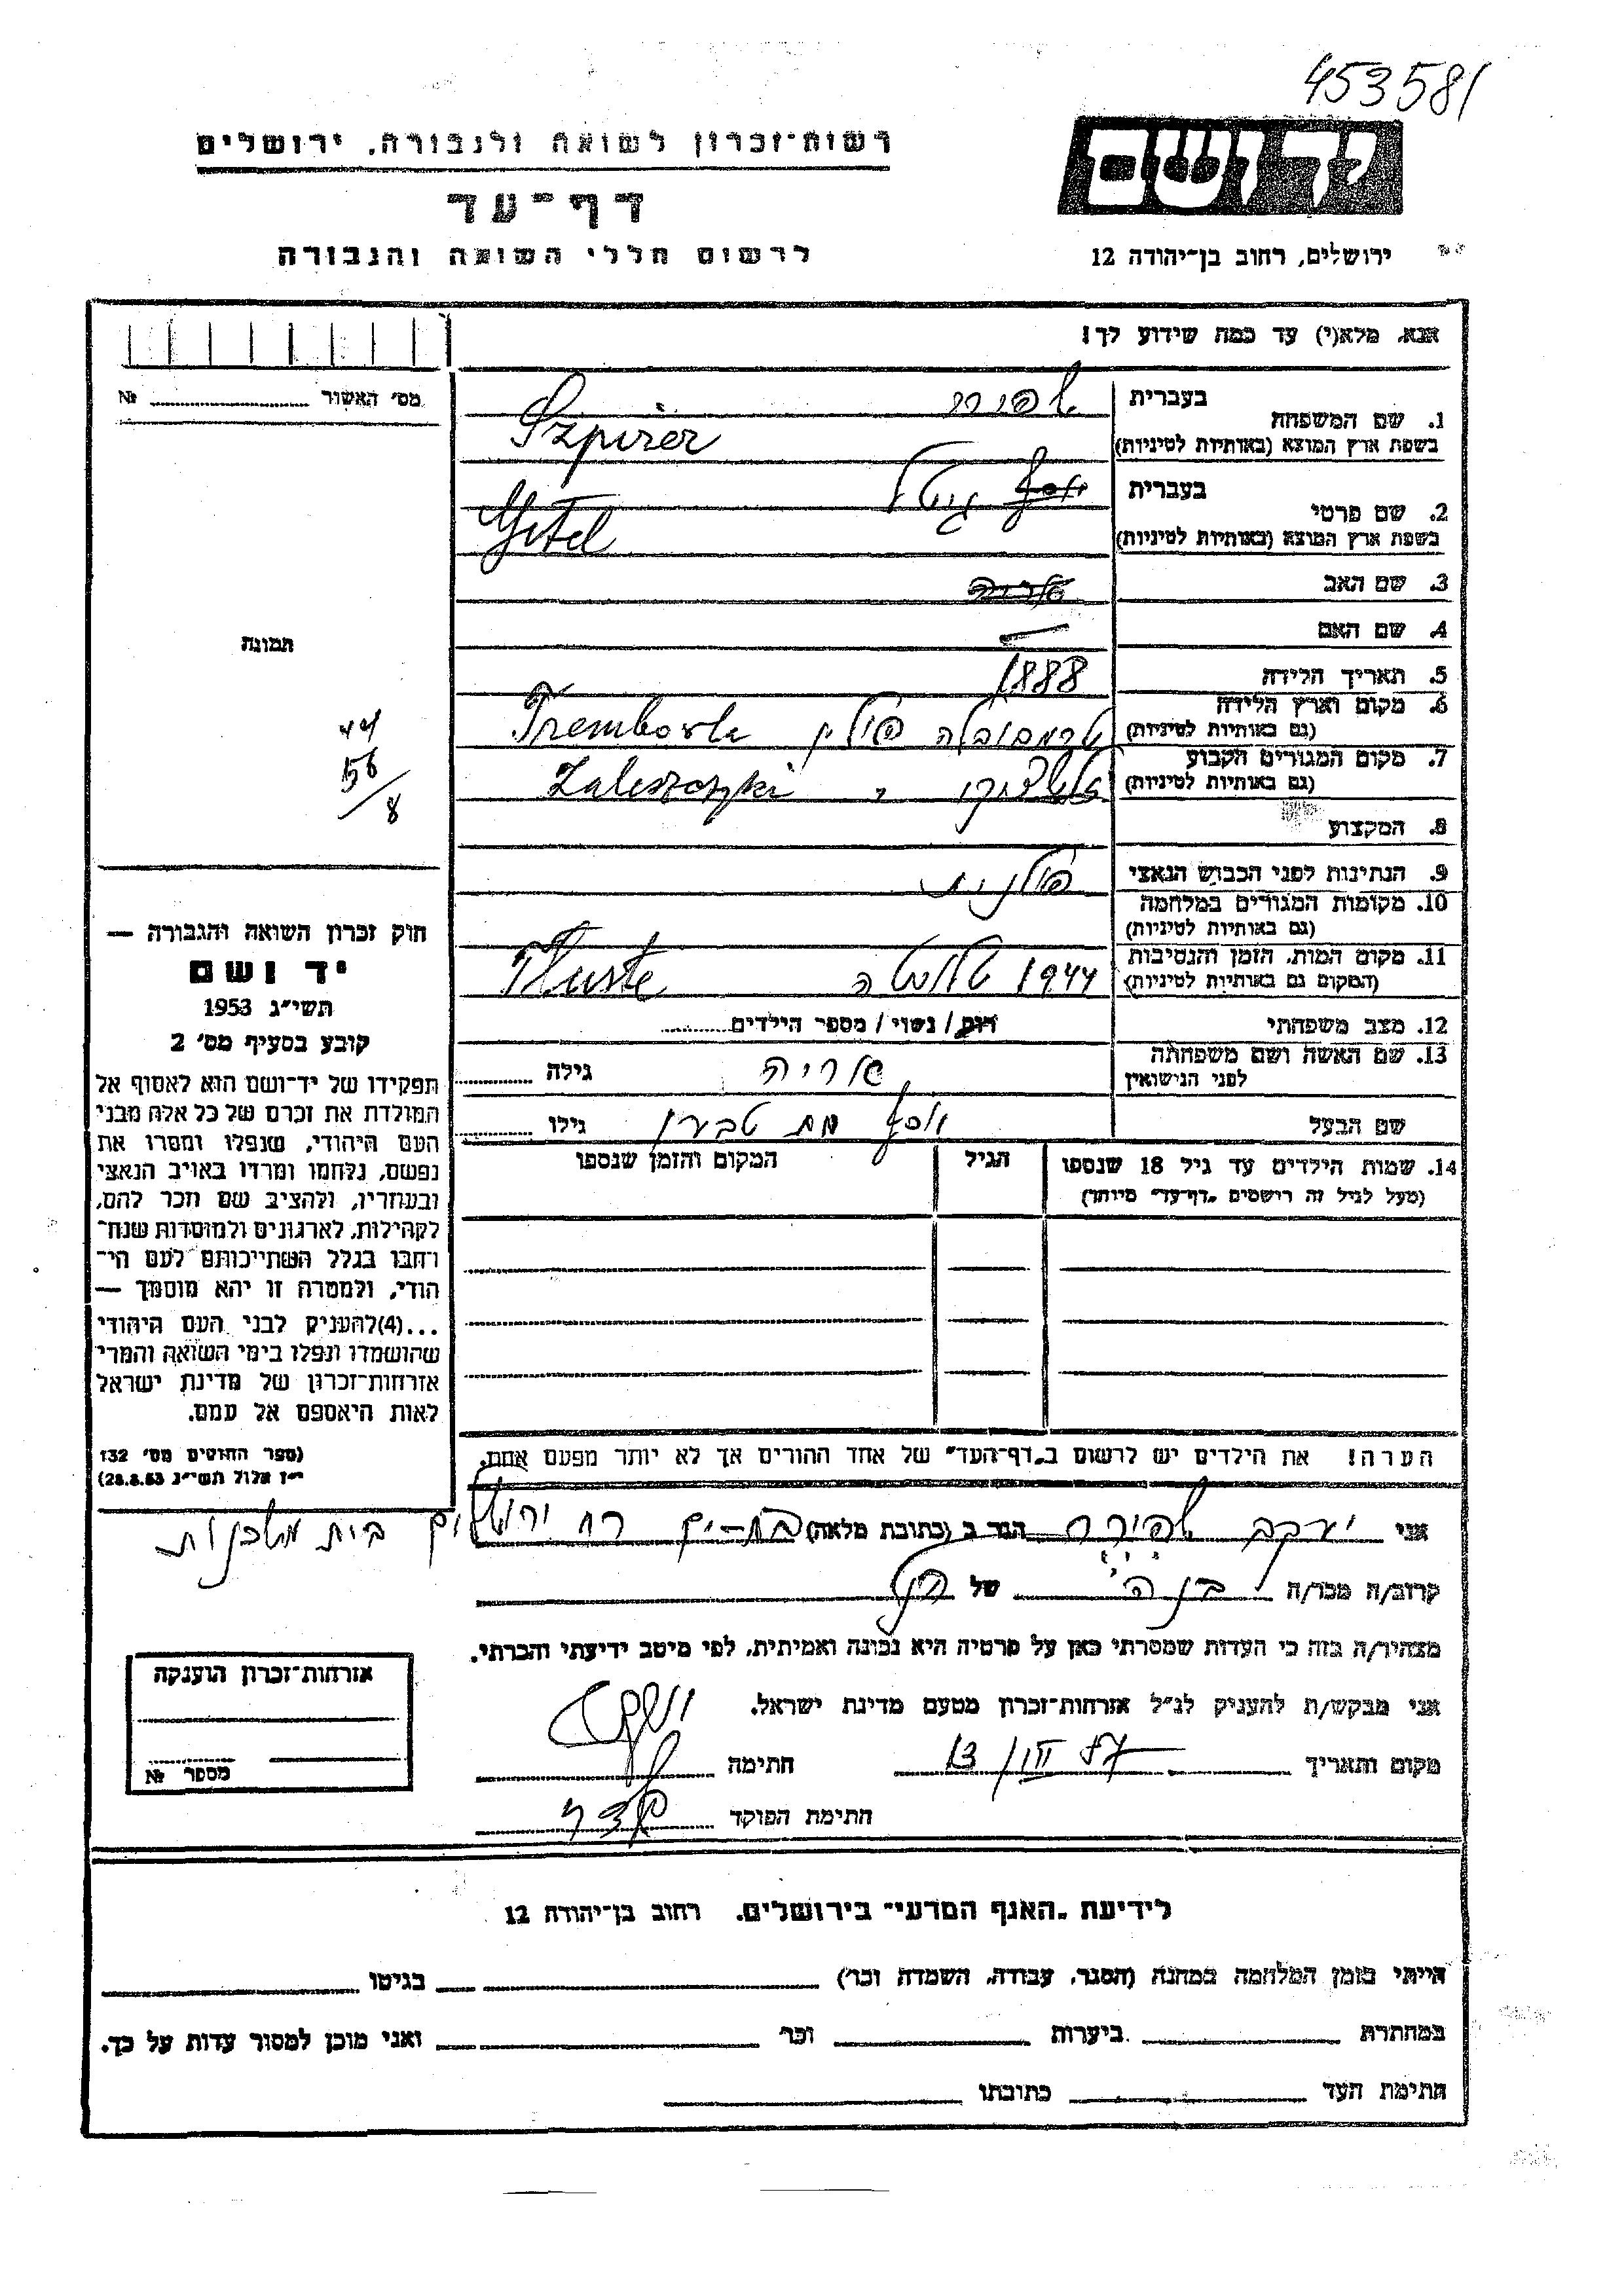 453581
יד ושם
רשות־זכרון לשואה ולגבורה, ירושלים
דף־עד
לרשום חללי השואה והגבורה
ירושלים, רחוב בן־יהודה 12
אנא, מלא(י) עד כמה שידוע לך!
מס׳ האשור № 
1. שם המשפחה בעברית
בשפת ארץ המוצא (באותיות לטיניות) Szpirer
2. שם פרטי בעברית יוסף גיטל
בשפת ארץ המוצא (באותיות לטיניות) Gitel
3. שם האב
4. שם האם —
תמונה
5. תאריך הלידה 1888
6. מקום וארץ הלידה
(גם באותיות לטיניות) טרמבובלה פולין Trembowla
7. מקום המגורים הקבוע
(גם באותיות לטיניות) Zaleszczyki
44
56
8
8. המקצוע
9. הנתינות לפני הכבוש הנאצי פולנית
10. מקומות המגורים במלחמה
(גם באותיות לטיניות)
11. מקום המות, הזמן והנסיבות
(המקום גם באותיות לטיניות) 1944 טלוסטה Tluste
12. מצב משפחתי רווק / נשוי / מספר הילדים
13. שם האשה ושם משפחתה
לפני הנישואין גילה
שם הבעל יוסף גילו
14. שמות הילדים עד גיל 18 שנספו
(מעל לגיל זה רישמים „דף־עד״ מיוחד)
הגיל
המקום והזמן שנספו
חוק זכרון השואה והגבורה —
יד ושם
תשי״ג 1953
קובע בסעיף מס׳ 2
תפקידו של יד־ושם הוא לאסוף אל
המולדת את זכרם של כל אלה מבני
העם היהודי, שנפלו ומסרו את
נפשם, נלחמו ומרדו באויב הנאצי
ובעוזריו, ולהציב שם וזכר להם,
לקהילות, לארגונים ולמוסדות שנח־
רבו בגלל השתייכותם לעם הי־
הודי, ולמטרה זו יהא מוסמך —
...(4)להעניק לבני העם היהודי
שהושמדו ונפלו בימי השואה והמרי
אזרחות־זכרון של מדינת ישראל
לאות היאספם אל עמם.
(ספר החוקים מס׳ 132
י״ז אלול תשי״ג 28.8.53)
הערה! את הילדים יש לרשום ב„דף־העד״ של אחד ההורים אך לא יותר מפעם אחת.
אני יעקב הגר ב (כתובת מלאה) בת־ים רח ירושלים בית משכנות
קרוב/ה מכר/ה בן ה של
מצהיר/ה בזה כי העדות שמסרתי כאן על פרטיה היא נכונה ואמיתית, לפי מיטב ידיעתי והכרתי.
אני מבקש/ת להעניק לנ״ל אזרחות־זכרון מטעם מדינת ישראל.
מקום ותאריך 13/III 87 חתימה
חתימת הפוקד
אזרחות־זכרון הוענקה
מספר №
לידיעת „האגף המדעי״ בירושלים, רחוב בן־יהודה 12
הייתי בזמן המלחמה במחנה (הסגר, עבודה, השמדה וכר׳) בגיטו
במחתרת ביערות וכר׳ ואני מוכן למסור עדות על כך.
חתימת העד כתובתו